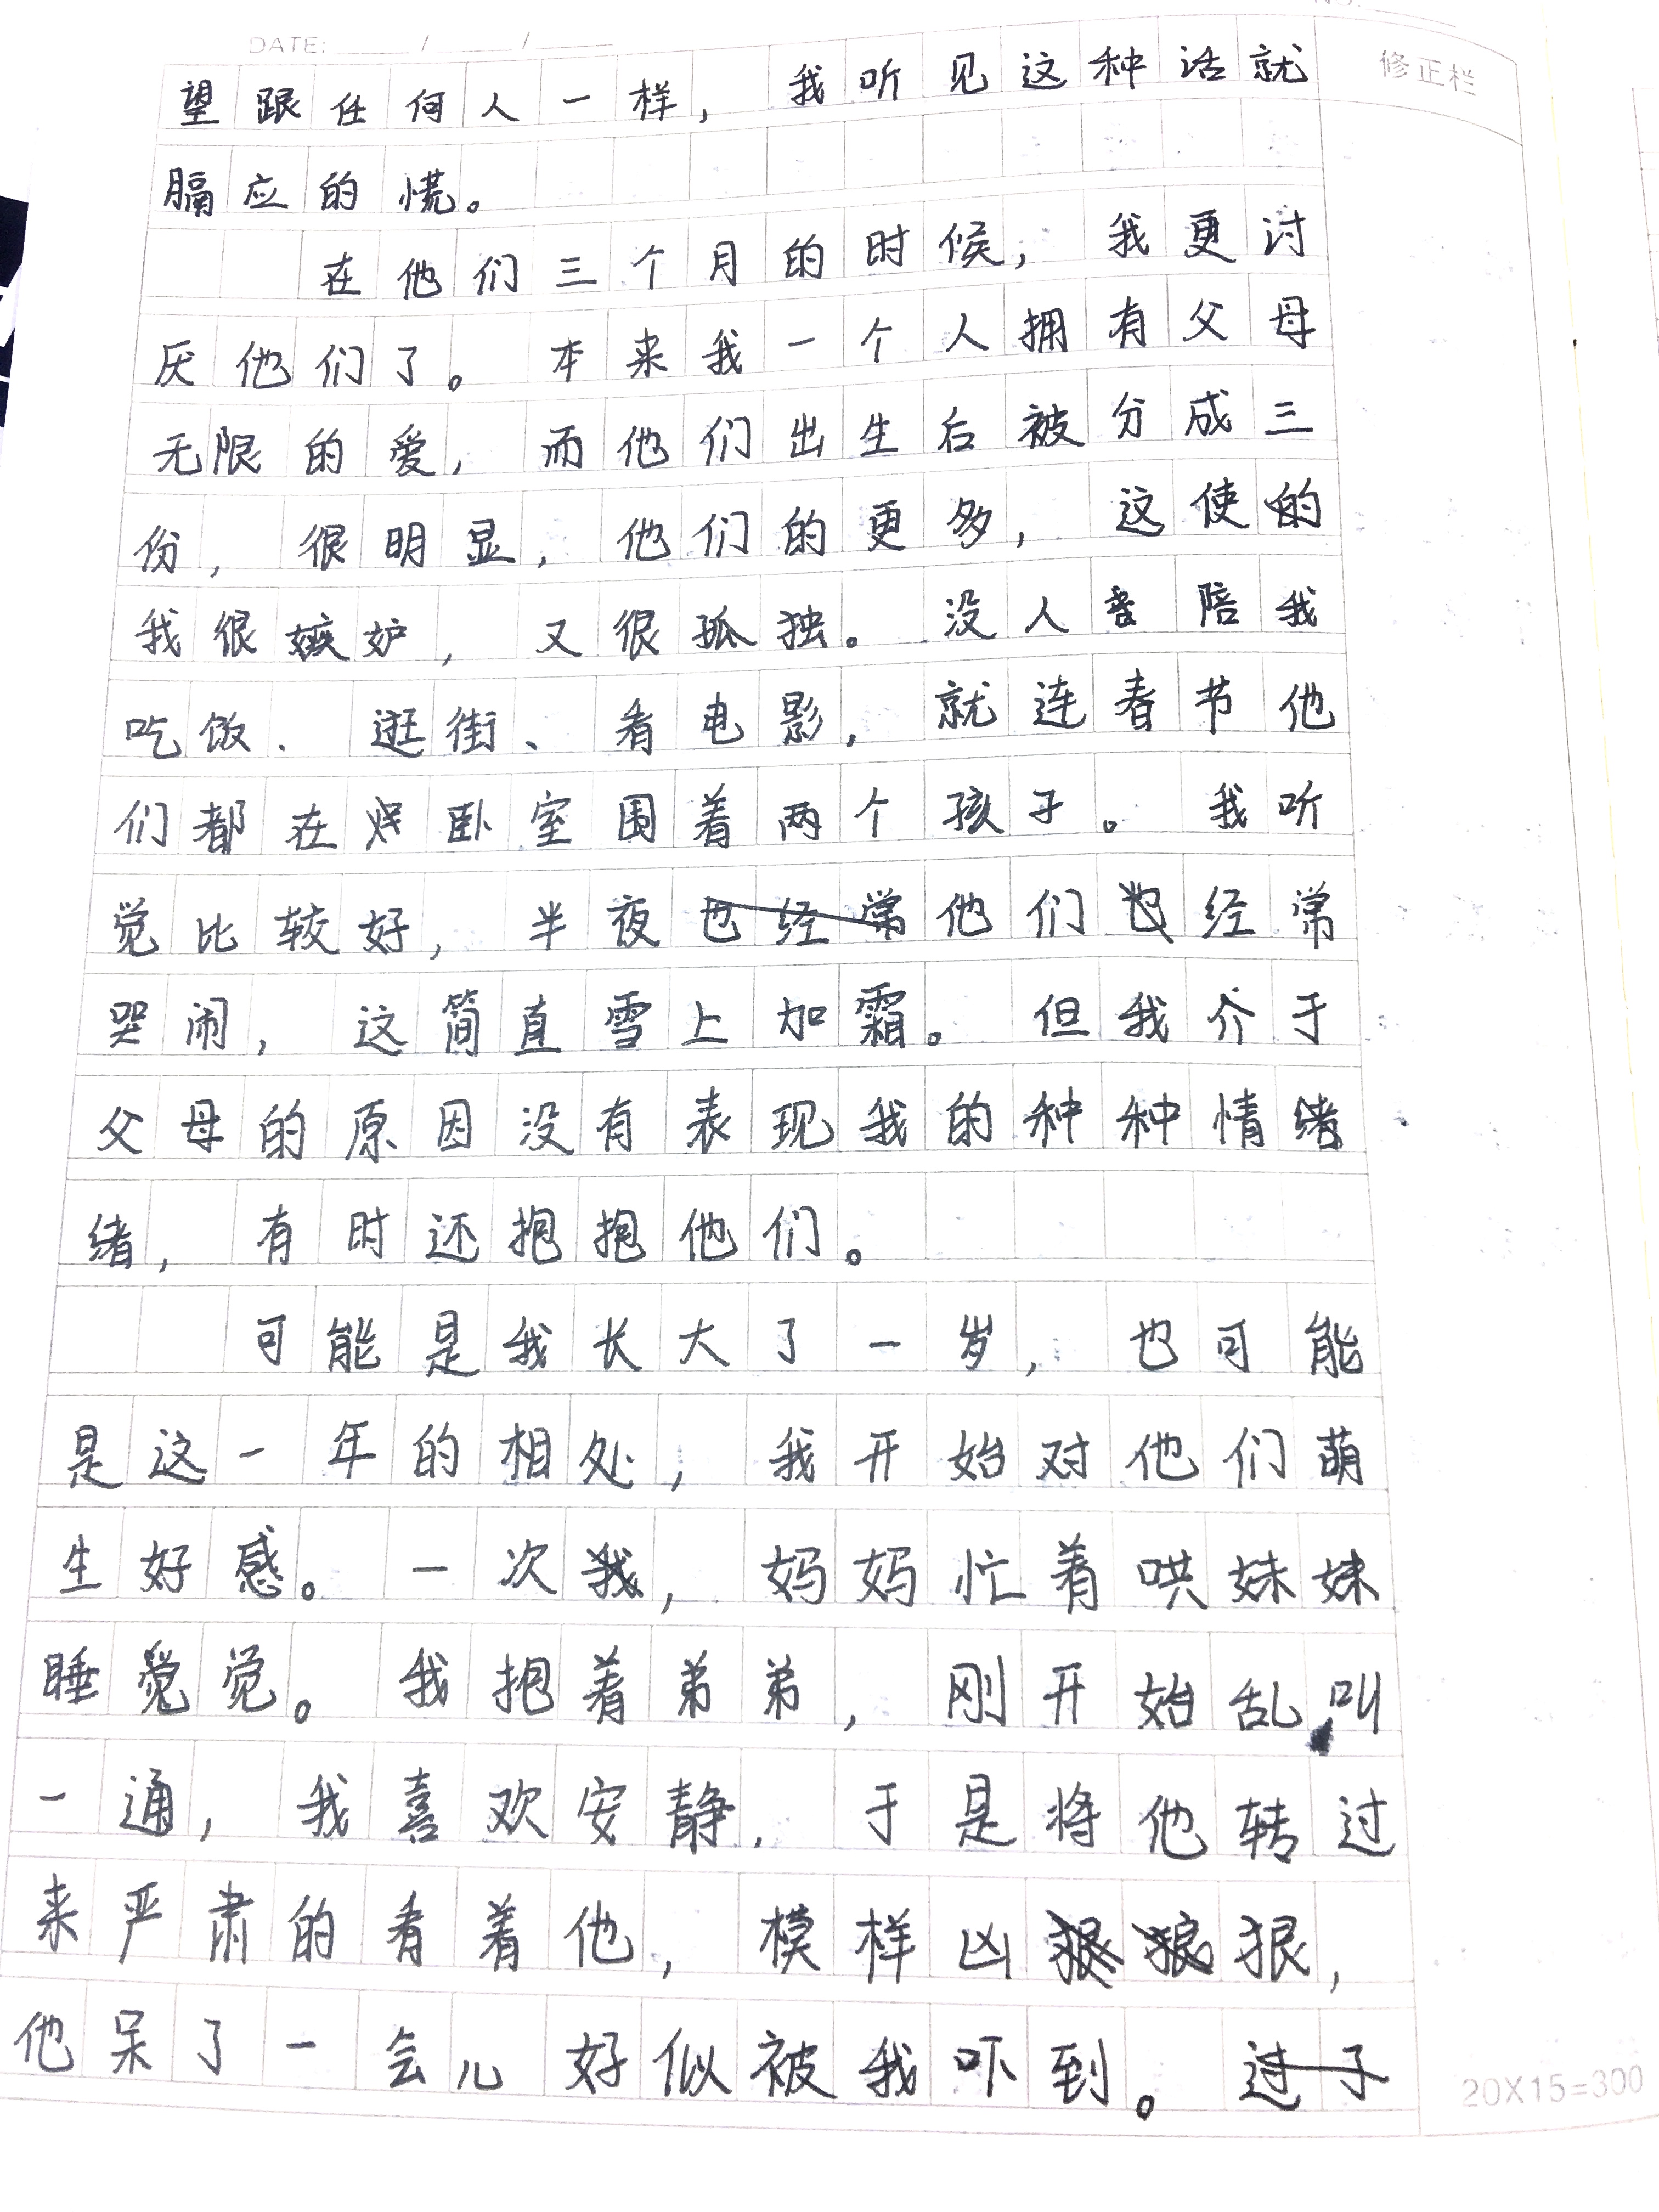 DATE: / /
NO.
修正栏
望跟任何人一样，我听见这种话就
膈应的慌。
在他们三个月的时候，我更讨
厌他们了。本来我一个人拥有父母
无限的爱，而他们出生后被分成三
份，很明显，他们的更多，这使的
我很嫉妒，又很孤独。没人陪我
吃饭、逛街、看电影，就连春节他
们都在卧室围着两个孩子。我听
觉比较好，半夜也经常他们也经常
哭闹，这简直雪上加霜。但我介于
父母的原因没有表现我的种种情绪
绪，有时还抱抱他们。
可能是我长大了一岁，也可能
是这一年的相处，我开始对他们萌
生好感。一次我，妈妈忙着哄妹妹
睡觉觉。我抱着弟弟，刚开始乱叫
一通，我喜欢安静，于是将他转过
来严肃的看着他，模样凶狠狠狠，
他呆了一会儿好似被我吓到。过了
20X15=300